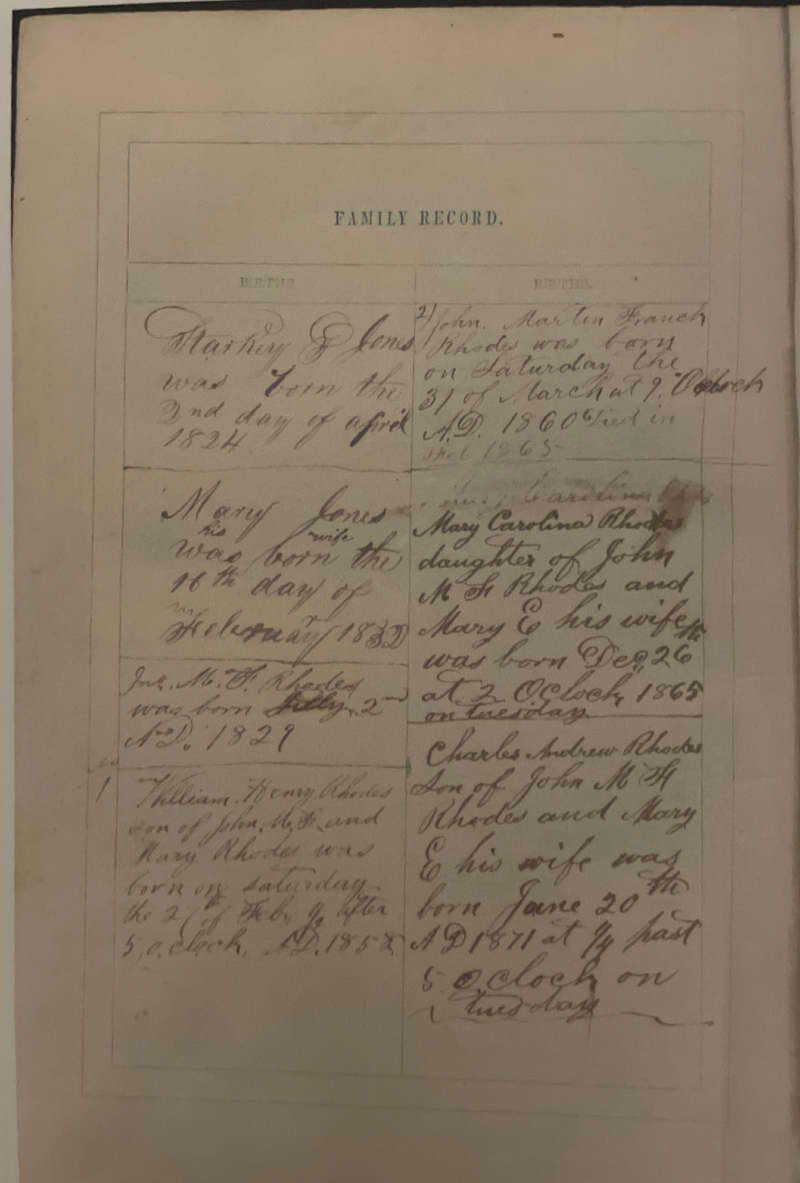 FAMILY RECORD.
BIRTHS.
Starkey Jones
was born the
2nd day of april
1824
Mary Jones
his wife
was born the
16th day of
February 1832
Jno. M. F. Rhodes
was born July 2nd
A.D. 1829
No
1
William Henry Rhodes
son of John. M. F. and
Mary Rhodes was
born on saturday
the 27th of Feb after
5. o.clock. A.D. 1858
BIRTHS.
2
John. Martin Franck
Rhodes was born
on Saturday the
31 of March at 9. Oclock
A.D. 1860 Died in
1865
Carolina
Mary Carolina Rhodes
daughter of John
M F Rhodes and
Mary E his wife
was born Dec, 26th
at 2 OClock, 1865
on tuesday
Charles Andrew Rhodes
Son of John M F
Rhodes and Mary
E his wife was
born June 20th
A D 1871 at past
5 O,clock on
tuesday